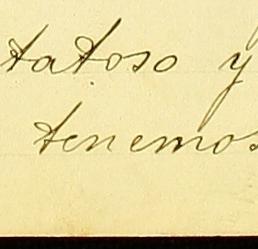 tatoso y
tenemos